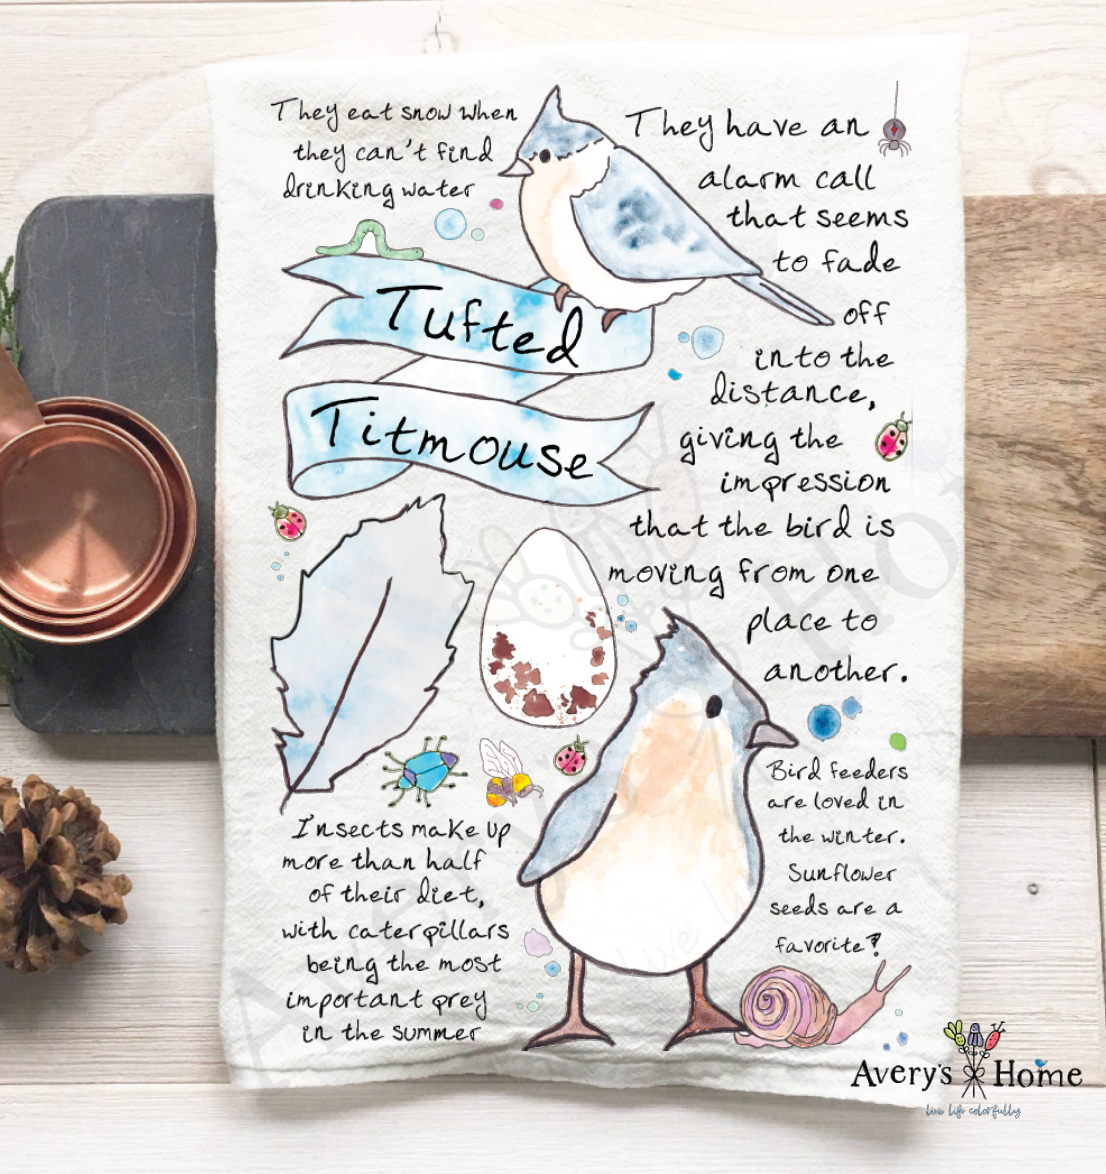 They eat snow when
they can't find
drinking water
They have an
alarm call
that seems
to fade
off
into the
distance,
giving the
impression
that the bird is
moving from one
place to
another.
Tufted
Titmouse
Insects make up
more than half
of their diet,
with caterpillars
being the most
important prey
in the summer
Bird feeders
are loved in
the winter.
Sunflower
seeds are a
favorite!
Avery's Home
live life colorfully